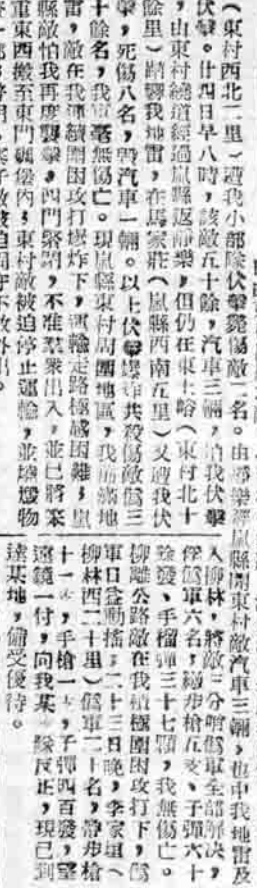 （東村西北二里）遭我小部隊伏擊斃傷敵二名。由靜樂經嵐縣開東村敵汽車三輛，也中我地雷及
伏擊。廿四日早八時，該敵五十餘，汽車三輛，
，由東村繞道經過嵐縣返靜樂，但仍在東土峪（東村北十
餘里）踏響我地雷，在馬家莊（嵐縣西南五里）又遭我伏
擊，死傷八名，毀汽車一輛。以上伏擊爆炸共殺傷敵偽三
十餘名，我軍毫無傷亡。現嵐縣東村周圍地區，我佈滿地
雷，敵在我軍續圍困攻打爆炸下，運輸走路極感困難；嵐
縣敵怕我再度襲擊，四門緊閉，不准羣衆出入，並已將某
重東西搬至東門碉堡內；東村敵被迫停止運輸，並燒燬物
入柳林，將敵三分哨偽軍全部解決，
俘偽軍六名，繳步槍五支、子彈六十
餘發、手榴彈三十七顆，我無傷亡。
柳離公路敵在我積極圍困攻打下，偽
軍日益動搖，二十三日晚，李家垣（
柳林西二十里）偽軍二十名，帶步槍
十一支，手槍一支，子彈四百發，望
遠鏡一付，向我某隊反正，現已到
達某地，備受優待。